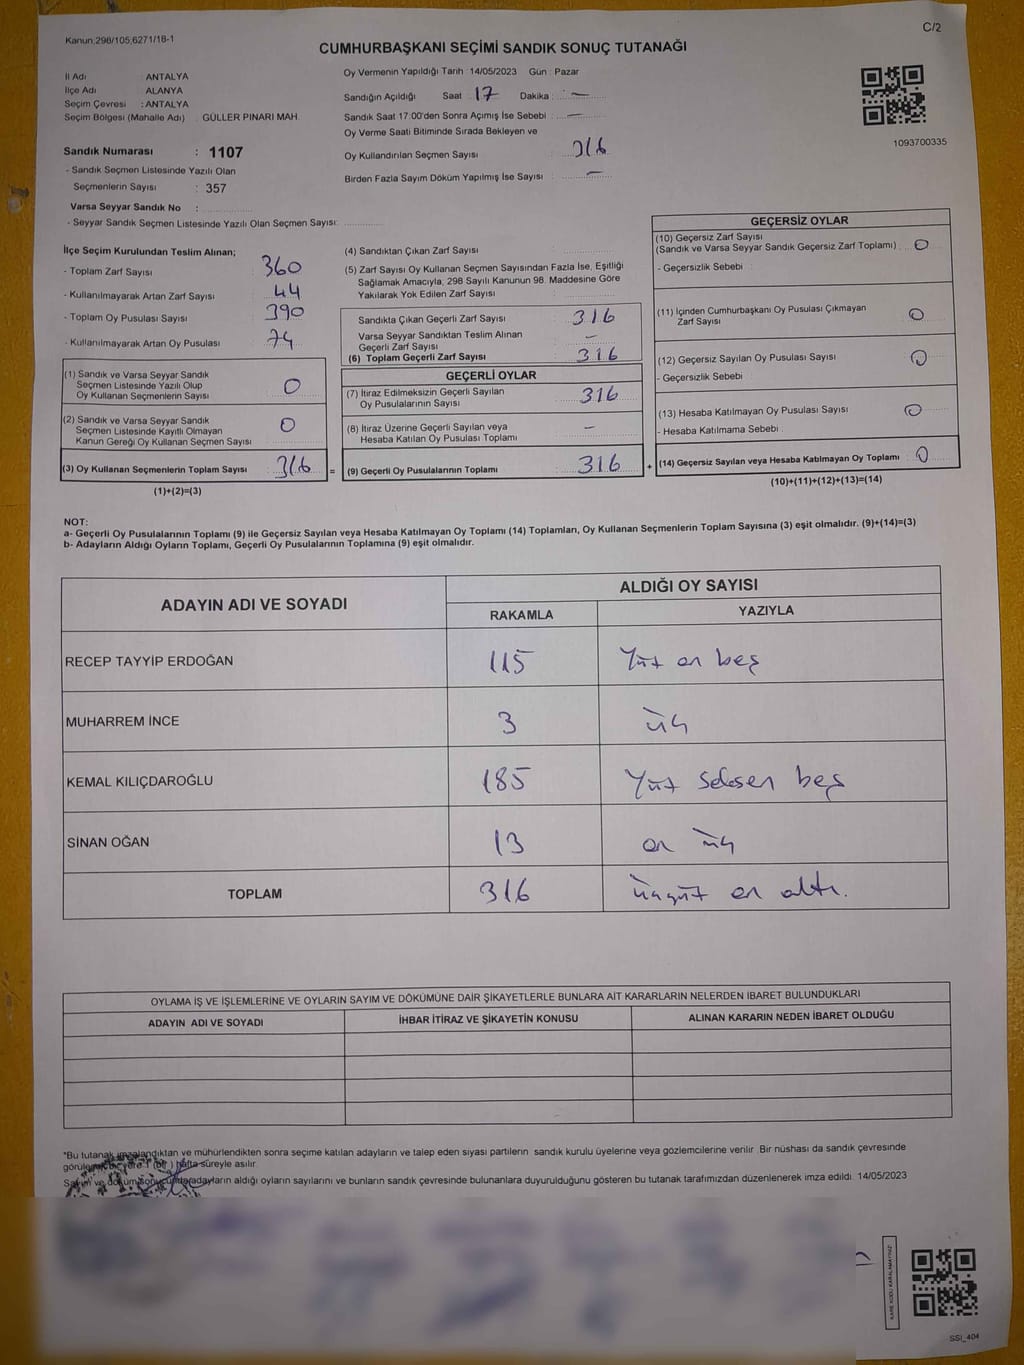 Kanun;298/105;6271/18-1
C/2
CUMHURBAŞKANI SEÇİMİ SANDIK SONUÇ TUTANAĞI
İl Adı : ANTALYA
İlçe Adı : ALANYA
Seçim Çevresi : ANTALYA
Seçim Bölgesi (Mahalle Adı) : GÜLLER PINARI MAH.
Sandık Numarası : 1107
- Sandık Seçmen Listesinde Yazılı Olan
Seçmenlerin Sayısı : 357
Varsa Seyyar Sandık No :
- Seyyar Sandık Seçmen Listesinde Yazılı Olan Seçmen Sayısı:
Oy Vermenin Yapıldığı Tarih :14/05/2023 Gün : Pazar
Sandığın Açıldığı Saat : 17 Dakika : —
Sandık Saat 17:00'den Sonra Açımış İse Sebebi : —
Oy Verme Saati Bitiminde Sırada Bekleyen ve
Oy Kullandırılan Seçmen Sayısı : 316
Birden Fazla Sayım Döküm Yapılmış İse Sayısı : —
1093700335
İlçe Seçim Kurulundan Teslim Alınan;
- Toplam Zarf Sayısı : 360
- Kullanılmayarak Artan Zarf Sayısı : 44
- Toplam Oy Pusulası Sayısı : 390
- Kullanılmayarak Artan Oy Pusulası : 74
(1) Sandık ve Varsa Seyyar Sandık
Seçmen Listesinde Yazılı Olup
Oy Kullanan Seçmenlerin Sayısı : 0
(2) Sandık ve Varsa Seyyar Sandık
Seçmen Listesinde Kayıtlı Olmayan
Kanun Gereği Oy Kullanan Seçmen Sayısı : 0
(3) Oy Kullanan Seçmenlerin Toplam Sayısı : 316
(1)+(2)=(3)
(4) Sandıktan Çıkan Zarf Sayısı :
(5) Zarf Sayısı Oy Kullanan Seçmen Sayısından Fazla İse, Eşitliği
Sağlamak Amacıyla, 298 Sayılı Kanunun 98. Maddesine Göre
Yakılarak Yok Edilen Zarf Sayısı :
Sandıkta Çıkan Geçerli Zarf Sayısı : 316
Varsa Seyyar Sandıktan Teslim Alınan
Geçerli Zarf Sayısı : —
(6) Toplam Geçerli Zarf Sayısı : 316
GEÇERLİ OYLAR
(7) İtiraz Edilmeksizin Geçerli Sayılan
Oy Pusulalarının Sayısı : 316
(8) İtiraz Üzerine Geçerli Sayılan veya
Hesaba Katılan Oy Pusulası Toplamı : —
= (9) Geçerli Oy Pusulalarının Toplamı : 316 +
GEÇERSİZ OYLAR
(10) Geçersiz Zarf Sayısı
(Sandık ve Varsa Seyyar Sandık Geçersiz Zarf Toplamı) : 0
- Geçersizlik Sebebi :
(11) İçinden Cumhurbaşkanı Oy Pusulası Çıkmayan
Zarf Sayısı : 0
(12) Geçersiz Sayılan Oy Pusulası Sayısı : 0
- Geçersizlik Sebebi :
(13) Hesaba Katılmayan Oy Pusulası Sayısı : 0
- Hesaba Katılmama Sebebi :
(14) Geçersiz Sayılan veya Hesaba Katılmayan Oy Toplamı : 0
(10)+(11)+(12)+(13)=(14)
NOT:
a- Geçerli Oy Pusulalarının Toplamı (9) ile Geçersiz Sayılan veya Hesaba Katılmayan Oy Toplamı (14) Toplamları, Oy Kullanan Seçmenlerin Toplam Sayısına (3) eşit olmalıdır. (9)+(14)=(3)
b- Adayların Aldığı Oyların Toplamı, Geçerli Oy Pusulalarının Toplamına (9) eşit olmalıdır.
ADAYIN ADI VE SOYADI
ALDIĞI OY SAYISI
RAKAMLA YAZIYLA
RECEP TAYYİP ERDOĞAN 115 Yüz on beş
MUHARREM İNCE 3 üç
KEMAL KILIÇDAROĞLU 185 Yüz seksen beş
SİNAN OĞAN 13 on üç
TOPLAM 316 üçyüz on altı.
OYLAMA İŞ VE İŞLEMLERİNE VE OYLARIN SAYIM VE DÖKÜMÜNE DAİR ŞİKAYETLERLE BUNLARA AİT KARARLARIN NELERDEN İBARET BULUNDUKLARI
ADAYIN ADI VE SOYADI İHBAR İTİRAZ VE ŞİKAYETİN KONUSU ALINAN KARARIN NEDEN İBARET OLDUĞU
*Bu tutanak imzalandıktan ve mühürlendikten sonra seçime katılan adayların ve talep eden siyasi partilerin sandık kurulu üyelerine veya gözlemcilerine verilir. Bir nüshası da sandık çevresinde
görülen bir yere 1 (bir) hafta süreyle asılır.
Sayım ve döküm sonucunda adayların aldığı oyların sayılarını ve bunların sandık çevresinde bulunanlara duyurulduğunu gösteren bu tutanak tarafımızdan düzenlenerek imza edildi. 14/05/2023
KARE KODU KARALAMAYINIZ!
SSI_404